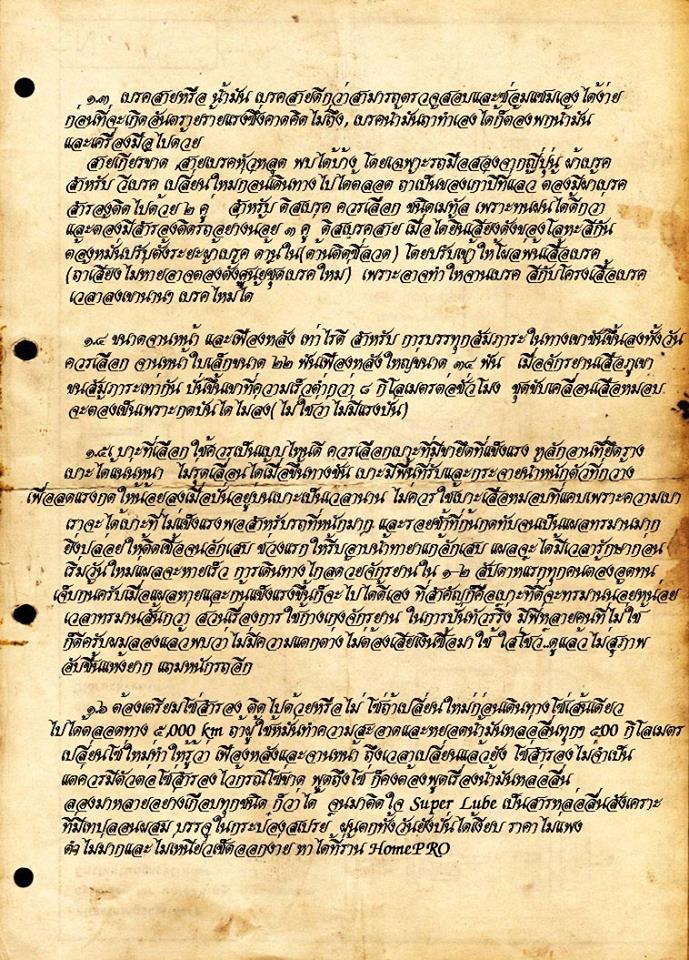 ๑.๓ เบรคสายหรือ น้ำมัน เบรคสายดีกว่าสามารถตรวจสอบและซ่อมแซมเองได้ง่าย
ก่อนที่จะเกิดอันตรายรายแรงซึ่งคาดคิดไม่ถึง, เบรคน้ำมันถ้าทำเองได้ก็ต้องพกน้ำมัน
และเครื่องมือไปด้วย
สายเกียรขาด สายเบรคหัวหลุด พบได้บ้าง โดยเฉพาะรถมือสองจากญี่ปุ่น ผ้าเบรค
สำหรับ วีเบรค เปลี่ยนใหม่ก่อนเดินทางไปได้ตลอด ถ้าเป็นของเก่าปีที่แล้ว ต้องมีผ้าเบรค
สำรองติดไปด้วย ๒ คู่ สำหรับ ดิสเบรค ควรเลือก ชนิดเมทัล เพราะทนฝนได้ดีกว่า
และต้องมีสำรองติดรถอย่างน้อย ๓ คู่ ดิสเบรคสาย เมื่อได้ยินเสียงดังของโลหะสีกัน
ต้องหมั่นปรับตั้งระยะผ้าเบรค ด้านใน(ด้านติดซี่ลวด) โดยปรับเข้าให้โผล่พ้นเสื้อเบรค
(ถ้าเสียงไม่หายอาจต้องตั้งศูนย์ชุดเบรคใหม่) เพราะอาจทำให้จานเบรค สีกับโครงเสื้อเบรค
เวลาลงเขานานๆ เบรคไหม้ได้
๑.๔ ขนาดจานหน้า และเฟืองหลัง เท่าไรดี สำหรับ การบรรทุกสัมภาระในทางเขาชันขึ้นลงทั้งวัน
ควรเลือก จานหน้าใบเล็กขนาด ๒๒ ฟันเฟืองหลังใหญ่ขนาด ๓๔ ฟัน เมื่อจักรยานเสือภูเขา
ขนสัมภาระเท่ากัน ปั่นขึ้นเขาที่ความเร็วต่ำกว่า ๘ กิโลเมตรต่อชั่วโมง ชุดขับเคลื่อนเสือหมอบ
จะต้องเข็นเพราะกดบันไดไม่ลง(ไม่ใช่ว่าไม่มีแรงปั่น)
๑.๕ เบาะที่เลือกใช้ควรเป็นแบบไหนดี ควรเลือกเบาะที่มีขายึดที่แข็งแรง หลักอานที่ยึดราง
เบาะได้แน่นหนา ไม่รูดเลื่อนได้เมื่อขึ้นทางชัน เบาะมีพื้นที่รับและกระจายน้ำหนักตัวที่กว้าง
เพื่อลดแรงกดให้น้อยลงเมื่อปั่นอยู่บนเบาะเป็นเวลานาน ไม่ควรใช้เบาะเสือหมอบที่แคบเพราะความเบา
เราจะได้เบาะที่ไม่แข็งแรงพอสำหรับรถที่หนักมาก และรอยช้ำที่ก้นกดทับจนเป็นแผลทรมานมาก
ยิ่งปล่อยให้ติดเชื้อจนอักเสบ ช่วงแรกให้รีบอาบน้ำทายาแก้อักเสบ แผลจะได้มีเวลารักษาก่อน
เริ่มวันใหม่แผลจะหายเร็ว การเดินทางไกลด้วยจักรยานใน ๑-๒ สัปดาห์แรกทุกคนต้องอดทน
เจ็บก้นครับเมื่อแผลหายและก้นแข็งแรงขึ้นก็จะไปได้ดีเอง ที่สำคัญก็คือเบาะที่ดีจะทรมานน้อยหน่อย
เวลาทรมานสั้นกว่า ส่วนเรื่องการใช้กางเกงจักรยาน ในการปั่นทัวร์ริ่ง มีพี่หลายคนที่ไม่ใช้
ก็ดีครับผมลองแล้วพบว่าไม่มีความแตกต่างไม่ต้องเสียเงินซื้อมาใช้ ใส่โชว์..ดูแล้วไม่สุภาพ
อับชื้นแห้งยาก แถมหนักรถอีก
๑.๖ ต้องเตรียมโซ่สำรอง ติดไปด้วยหรือไม่ โซ่ถ้าเปลี่ยนใหม่ก่อนเดินทางโซ่เส้นเดียว
ไปได้ตลอดทาง ๕,๐๐๐ km ถ้าผู้ใช้หมั่นทำความสะอาดและหยอดน้ำมันหล่อลื่นทุกๆ ๕๐๐ กิโลเมตร
เปลี่ยนโซ่ใหม่ทำให้รู้ว่า เฟืองหลังและจานหน้า ถึงเวลาเปลี่ยนแล้วยัง โซ่สำรองไม่จำเป็น
แต่ควรมีตัวต่อโซ่สำรองไว้กรณีโซ่ขาด พูดถึงโซ่ ก็คงต้องพูดเรื่องน้ำมันหล่อลื่น
ลองมาหลายอย่างเกือบทุกชนิด ก็ว่าได้ จนมาติดใจ Super Lube เป็นสารหล่อลื่นสังเคราะ
ที่มีเทปลอนผสม บรรจุในกระป๋องสเปรย์ ฝนตกทั้งวันยังปั่นได้เงียบ ราคาไม่แพง
ดำไม่มากและไม่เหนียวเช็ดออกง่าย หาได้ที่ร้าน HomePRO